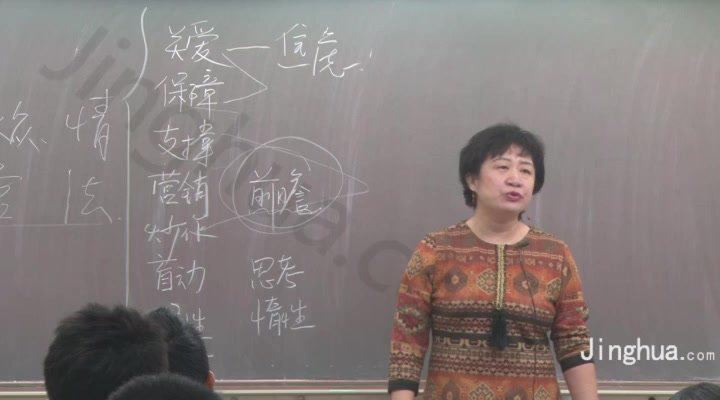 关爱 信度
保障
情
支撑
法
营销 前瞻
炒作
首动 思考
惰性
Jinghua.com
Jinghua.com